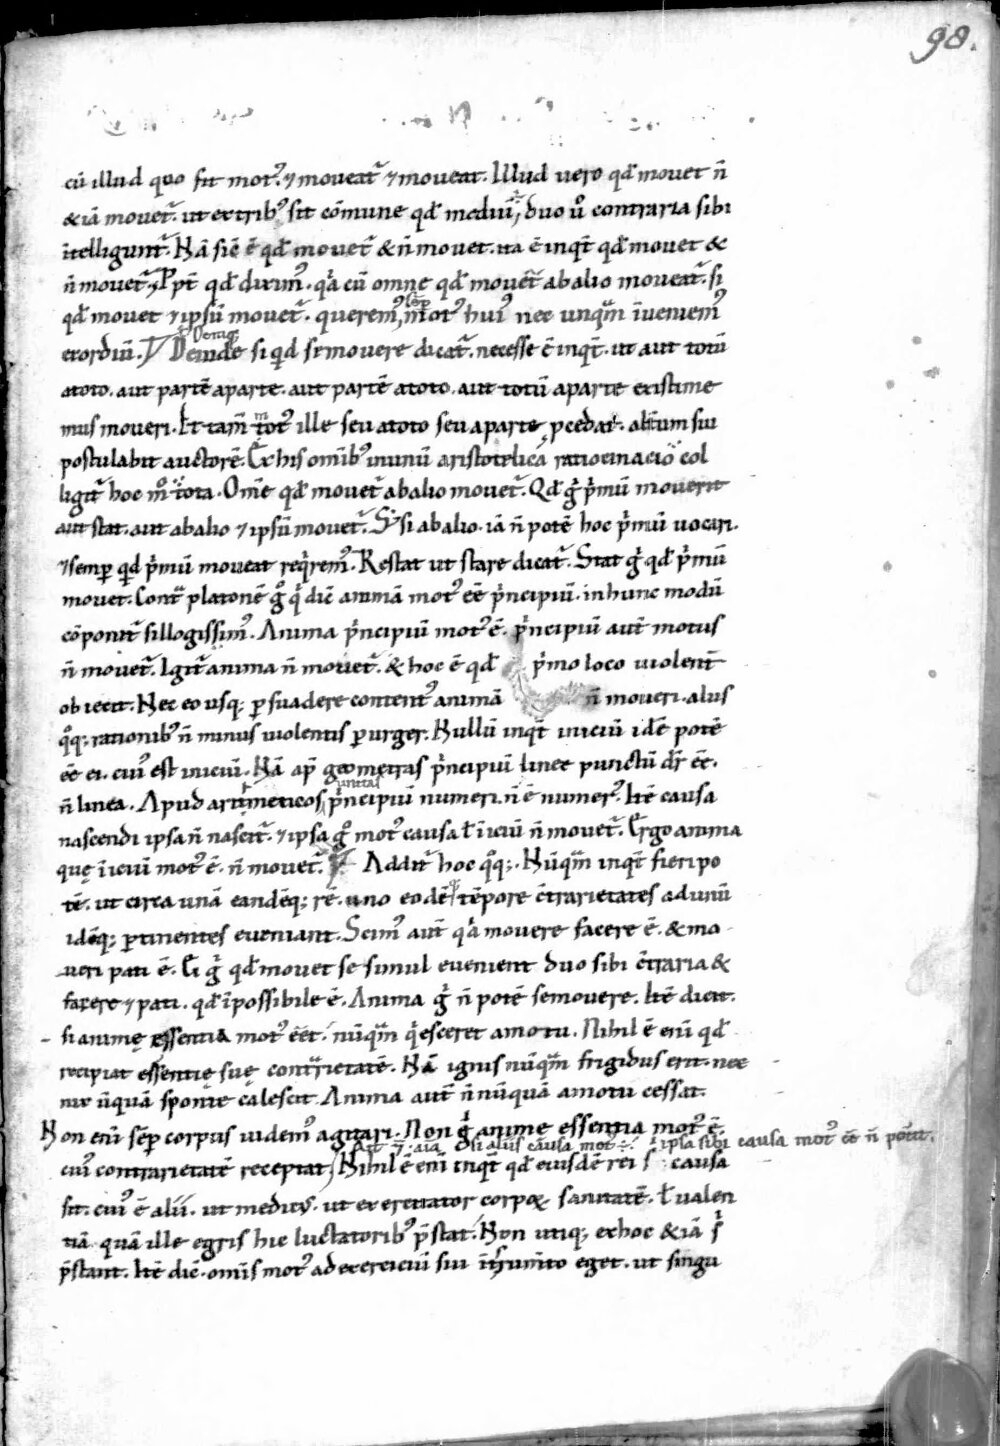 98.
cū illud quo fit mot⁹. ⁊ moveat᷑ ⁊ moveat. Illud vero qd̄ movet n̄
& iā movet᷑. ut ex trib⁹ sit cōmune qd̄ mediū, duo v̊ contraria sibi
ītelligunt᷑. Nā sic̄ ē qd̄ movet᷑ & n̄ movet. ita ē inqt̄ qd̄ movet &
n̄ movet᷑. Ppt̄ qd̄ dixim⁹. qͣ cū omne qd̄ movet᷑ ab alio moveat᷑. si
qd̄ movet ⁊ ipsū movet᷑. querem⁹ sēp mot⁹ hui⁹ nec unqͣm īveniem⁹
exordiū. Deniq;
Deinde si qd̄ se movere dicat᷑. necesse ē inqt̄. ut aut totū
a toto. aut partē a parte. aut partē a toto. aut totū a parte existime
mus moveri. Et tam̄ mot⁹ ille seu a toto seu a parte ꝓcedat. altūm sui
postulabit auctorē. Ex his omīb⁹ in unū aristotelica ratiocinacio col
ligit᷑ hoc mº tota. Om̄e qd̄ movet᷑ ab alio movet᷑. Qd̄ gͥ pͥmū moverit
aut stat. aut ab alio ⁊ ipsū movet᷑. S; si ab alio. iā n̄ potē hoc pͥmū vocari.
⁊ semp̄ qd̄ pͥmū moveat reqͥrem⁹. Restat ut stare dicat᷑. Stat gͥ qd̄ pͥmū
movet. Contͣ platonē gº qͥ dic̄ animā mot⁹ eē pͥncipiū. in hunc modū
cōponit᷑ sillogissim⁹. Anima pͥncipiū mot⁹ ē. pͥncipiū aut̄ motus
n̄ movet᷑. Igit᷑ anima n̄ movet᷑. & hoc ē qd̄ pͥmo loco violent̄
obiecit. Nec eo usq; ꝑsuadere content⁹ animā n̄ moveri. aliis
qºq; rationib⁹ n̄ minus violentis ꝑurget. Nullū inqt̄ iniciū idē potē
eē ei. cui⁹ est iniciū. Nā ap̄ geometras pͥncipiū linee punctū dr̄ eē.
n̄ linea. Apud aritmeticos pͥncipiū numeri unitas. n̄ ē numer⁹. Itē causa
nascendi ipsa n̄ nascit᷑. ⁊ ipsa gº mot⁹ causa ł īiciū n̄ movet᷑. Ergo anima
quę īiciū mot⁹ ē. n̄ movet᷑. Addit᷑ hoc qºq;. Nūqͣm inqt̄ fieri po
tē. ut circa unā eandēq; rē. uno eodē tēpore c̄trarietates ad unū
idēq; ꝑtinentes eveniant. Scim⁹ aut̄ qͣ movere facere ē. & mo
veri pati ē. Ei gͥ qd̄ movet se simul evenient duo sibi c̄traria &
facere ⁊ pati. qd̄ īpossibile ē. Anima gͥ n̄ potē se movere. Itē dicit.
si animę essentia mot⁹ eēt. nūqͣm qͥesceret a motu. Nihil ē enī qd̄
recipiat essentię suę contͣrietatē. Nā ignis nūqͣm frigidus erit. nec
nix ūquā sponte calescit. Anima aut̄ n̄ nūquā a motu cessat.
Non enī sēp corpus videm⁹ agitari. Non gͥ anime essentia mot⁹ ē.
ait ⁊ aīa si aliis causa mot⁹ ÷. ipsa sibi causa mot⁹ eē n̄ potīt.
cui⁹ contrarietatē receptat. Nihil ē enī inqt̄ qd̄ eiusdē rei s͛ causa
sit. cui⁹ ē alii. ut medic⁹. ut exercitator corpoꝝ sanitatē. ł valen
tiā quā ille egris hic luctatorib⁹ p̄stat. Non utiq; ex hoc & iā s͛
p̄stant. Itē dic̄. omīs mot⁹ ad exerciciū sui īstrumīto eget. ut singu